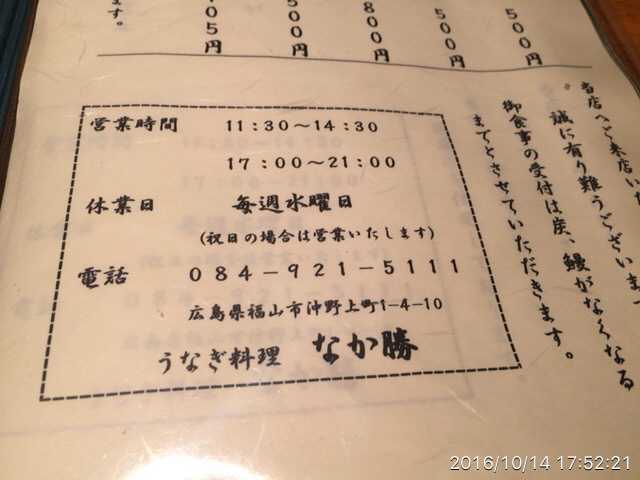 ５００円
５００円
８００円
５００円
０５円
ます。
当店へご来店いた
誠に有り難うございま
御食事の受付は炭、鰻がなくなる
までとさせていただきます。
営業時間　11：30～14：30
17：00～21：00
休業日　毎週水曜日
（祝日の場合は営業いたします）
電話　０８４－９２１－５１１１
広島県福山市沖野上町1-4-10
うなぎ料理　なか勝
2016/10/14 17:52:21